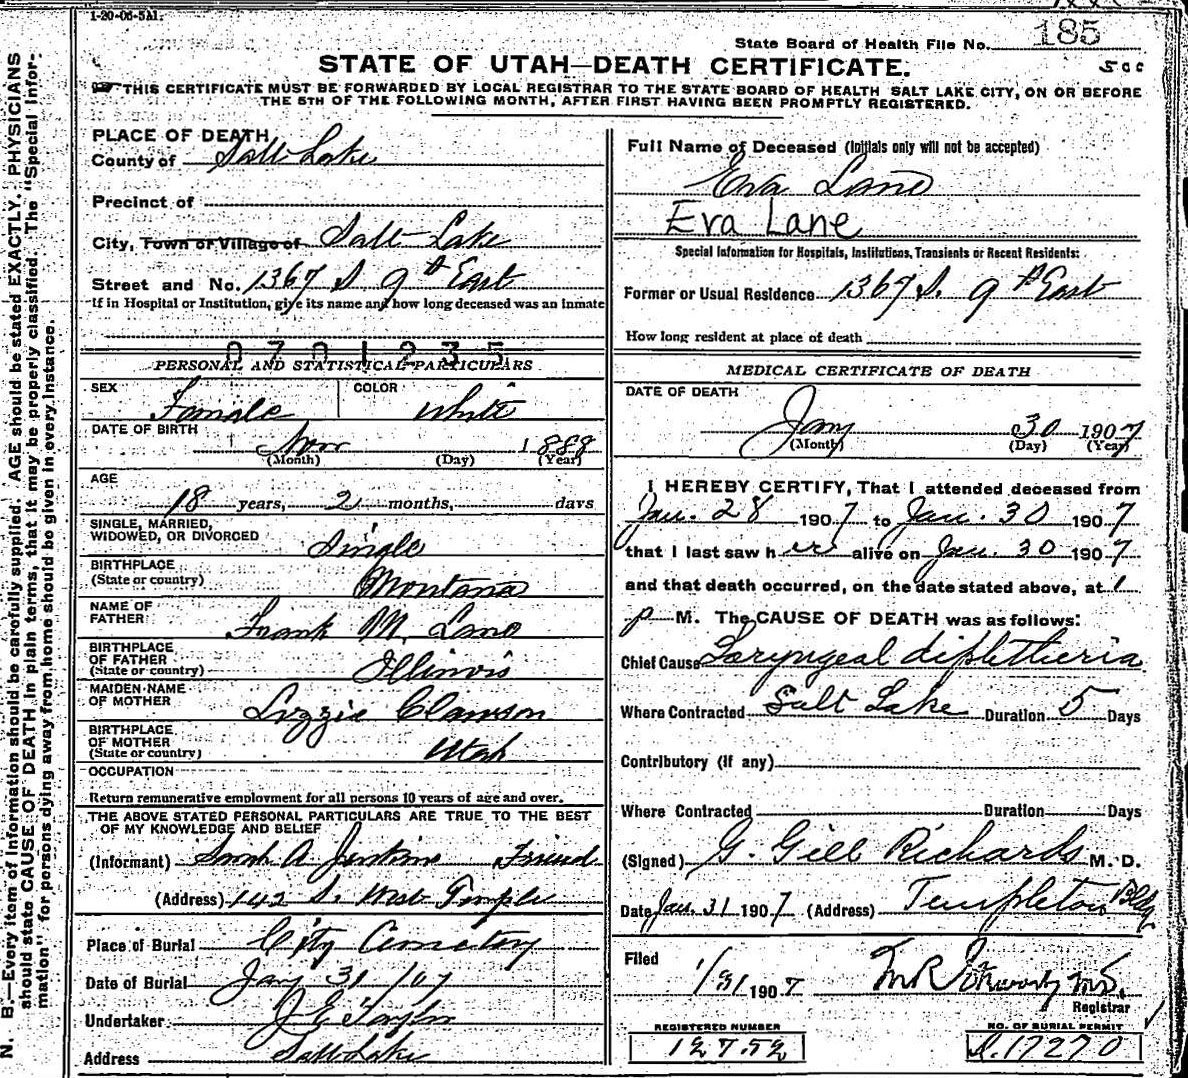 1-20-06-5M.
State Board of Health File No. 185
STATE OF UTAH—DEATH CERTIFICATE.
500
THIS CERTIFICATE MUST BE FORWARDED BY LOCAL REGISTRAR TO THE STATE BOARD OF HEALTH SALT LAKE CITY, ON OR BEFORE
THE 5TH OF THE FOLLOWING MONTH, AFTER FIRST HAVING BEEN PROMPTLY REGISTERED.
N. B.—Every item of information should be carefully supplied. AGE should be stated EXACTLY. PHYSICIANS
should state CAUSE OF DEATH in plain terms, that it may be properly classified. The "Special Infor-
mation" for persons dying away from home should be given in every instance.
PLACE OF DEATH
County of Salt Lake
Precinct of
City, Town or Village of Salt Lake
Street and No. 1367 S 9th East
If in Hospital or Institution, give its name and how long deceased was an inmate
0701235
PERSONAL AND STATISTICAL PARTICULARS
SEX Female COLOR White
DATE OF BIRTH Nov 1888
(Month) (Day) (Year)
AGE
18 years, 2 months, days
SINGLE, MARRIED,
WIDOWED, OR DIVORCED Single
BIRTHPLACE
(State or country) Montana
NAME OF
FATHER Frank M. Lane
BIRTHPLACE
OF FATHER
(State or country) Illinois
MAIDEN NAME
OF MOTHER Lizzie Clawson
BIRTHPLACE
OF MOTHER
(State or country) Utah
OCCUPATION
Return remunerative employment for all persons 10 years of age and over.
THE ABOVE STATED PERSONAL PARTICULARS ARE TRUE TO THE BEST
OF MY KNOWLEDGE AND BELIEF
(Informant) Sarah A Jenkins Friend
(Address) 142 S. West Temple
Place of Burial City Cemetery
Date of Burial Jany 31/07
Undertaker J E Taylor
Address Salt Lake
Full Name of Deceased (Initials only will not be accepted)
Eva Lane
Eva Lane
Special Information for Hospitals, Institutions, Transients or Recent Residents:
Former or Usual Residence 1367 S. 9th East
How long resident at place of death
MEDICAL CERTIFICATE OF DEATH
DATE OF DEATH
Jany 30 1907
(Month) (Day) (Year)
I HEREBY CERTIFY, That I attended deceased from
Jan. 28 1907 to Jan. 30 1907
that I last saw her alive on Jan. 30 1907
and that death occurred, on the date stated above, at 1
p M. The CAUSE OF DEATH was as follows:
Chief Cause Laryngeal diphtheria
Where Contracted Salt Lake Duration 5 Days
Contributory (if any)
Where Contracted Duration Days
(Signed) G. Gill Richards M. D.
Date Jan. 31 1907 (Address) Templeton Bldg
Filed
1/31 1907
Registrar
REGISTERED NUMBER
12752
NO. OF BURIAL PERMIT
D. 17270